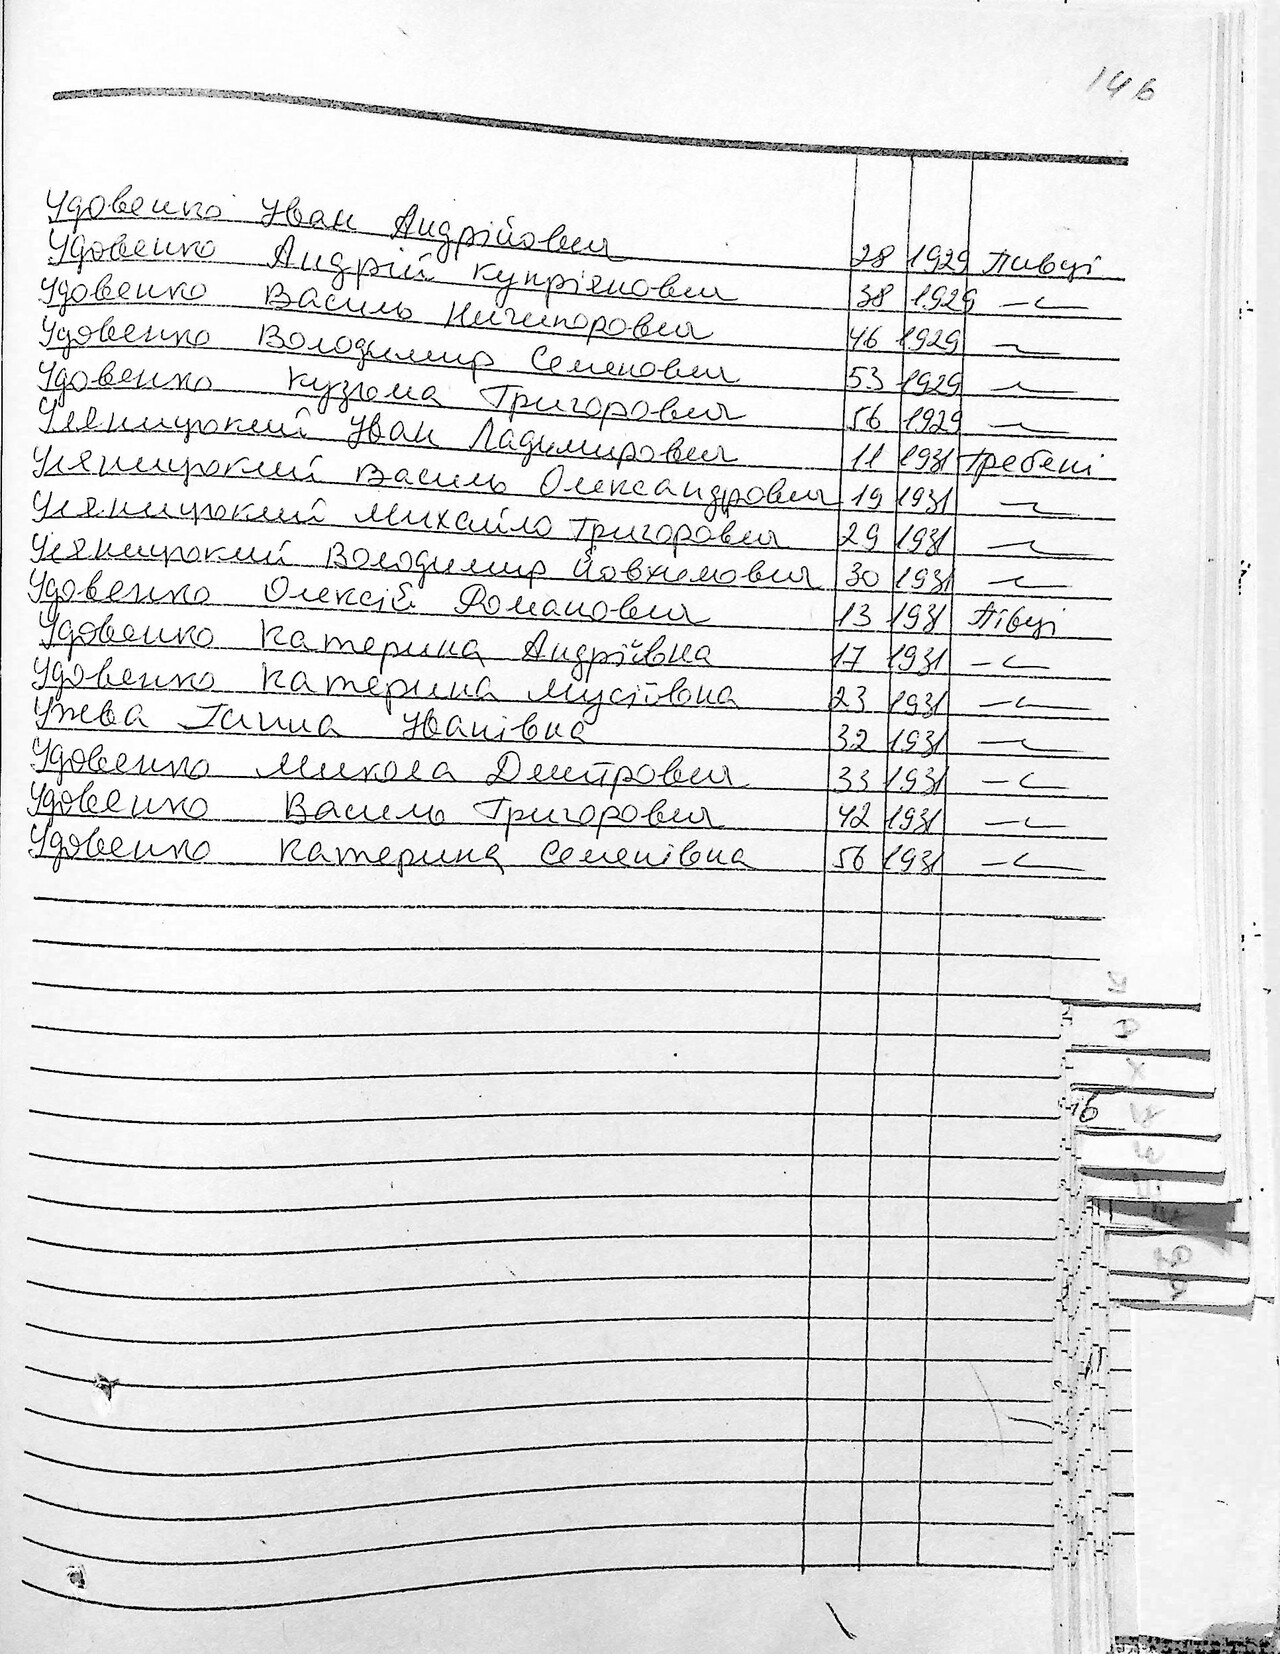 146
Удовенко Іван Андрійович 28 1929 Пивці
Удовенко Андрій Купріянович 38 1929 —〃—
Удовенко Василь Ничипорович 46 1929 —〃—
Удовенко Володимир Семенович 53 1929 —〃—
Удовенко Кузьма Григорович 56 1929 —〃—
Уляницький Іван Ладимирович 11 1931 Гребені
Уляницький Василь Олександрович 19 1931 —〃—
Уляницький Михайло Григорович 29 1931 —〃—
Уляницький Володимир Йовхимович 30 1931 —〃—
Удовенко Олексій Романович 13 1931 Півці
Удовенко Катерина Андріївна 17 1931 —〃—
Удовенко Катерина Мусіївна 23 1931 —〃—
Ужва Ганна Іванівна 32 1931 —〃—
Удовенко Микола Дмитрович 33 1931 —〃—
Удовенко Василь Григорович 42 1931 —〃—
Удовенко Катерина Семенівна 56 1931 —〃—